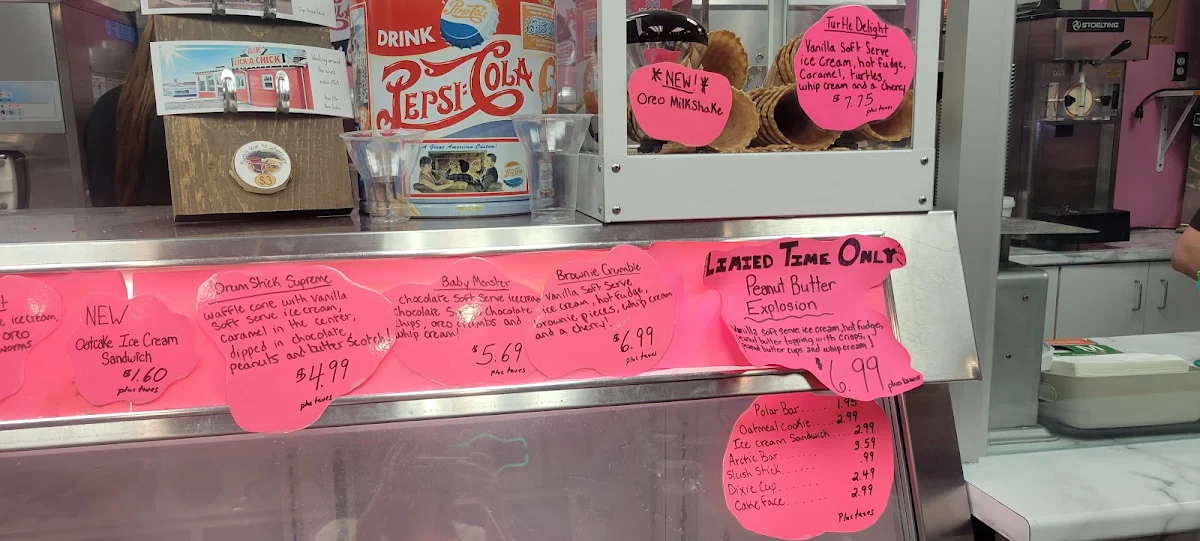 DRINK
Pepsi-Cola
Pepsi-Cola
A Great American Custom!
LICK-A-CHICK
$3
STOELTING
*NEW!*
Oreo Milkshake
Turtle Delight
Vanilla Soft Serve
ice cream, hot fudge,
caramel, turtles,
whip cream and a cherry
$7.75
plus taxes
ice cream,
oreo
worms
NEW
Oatcake Ice Cream
Sandwich
$1.60
plus taxes
Drum Stick Supreme
waffle cone with vanilla
soft serve ice cream,
caramel in the center,
dipped in chocolate,
peanuts and butter scotch!
$4.99
plus taxes
Baby Monster
chocolate soft serve icecream
chocolate chocolate
chips, oreo crumbs and
whip cream!
$5.69
plus taxes
Brownie Crumble
Vanilla Soft Serve
ice cream, hot fudge,
brownie pieces, whip cream
and a cherry!
$6.99
plus taxes
LIMIED TIME ONLY
Peanut Butter
Explosion
Vanilla soft serve ice cream, hot fudge,
peanut butter topping with crisps,
peanut butter cups and whip cream!
$6.99
plus taxes
Polar Bar...... 1.95
Oatmeal Cookie.... 2.99
Ice Cream Sandwich.... 2.99
Arctic Bar...... 3.59
Slush Stick...... .99
Dixie Cup....... 2.49
Cake Face....... 2.99
Plus taxes